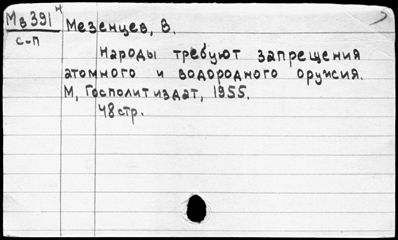 Мв391ч Мезенцев, В.
с-п
Народы требуют запрещения
атомного и водородного оружия.
М, Госполитиздат, 1955.
48стр.